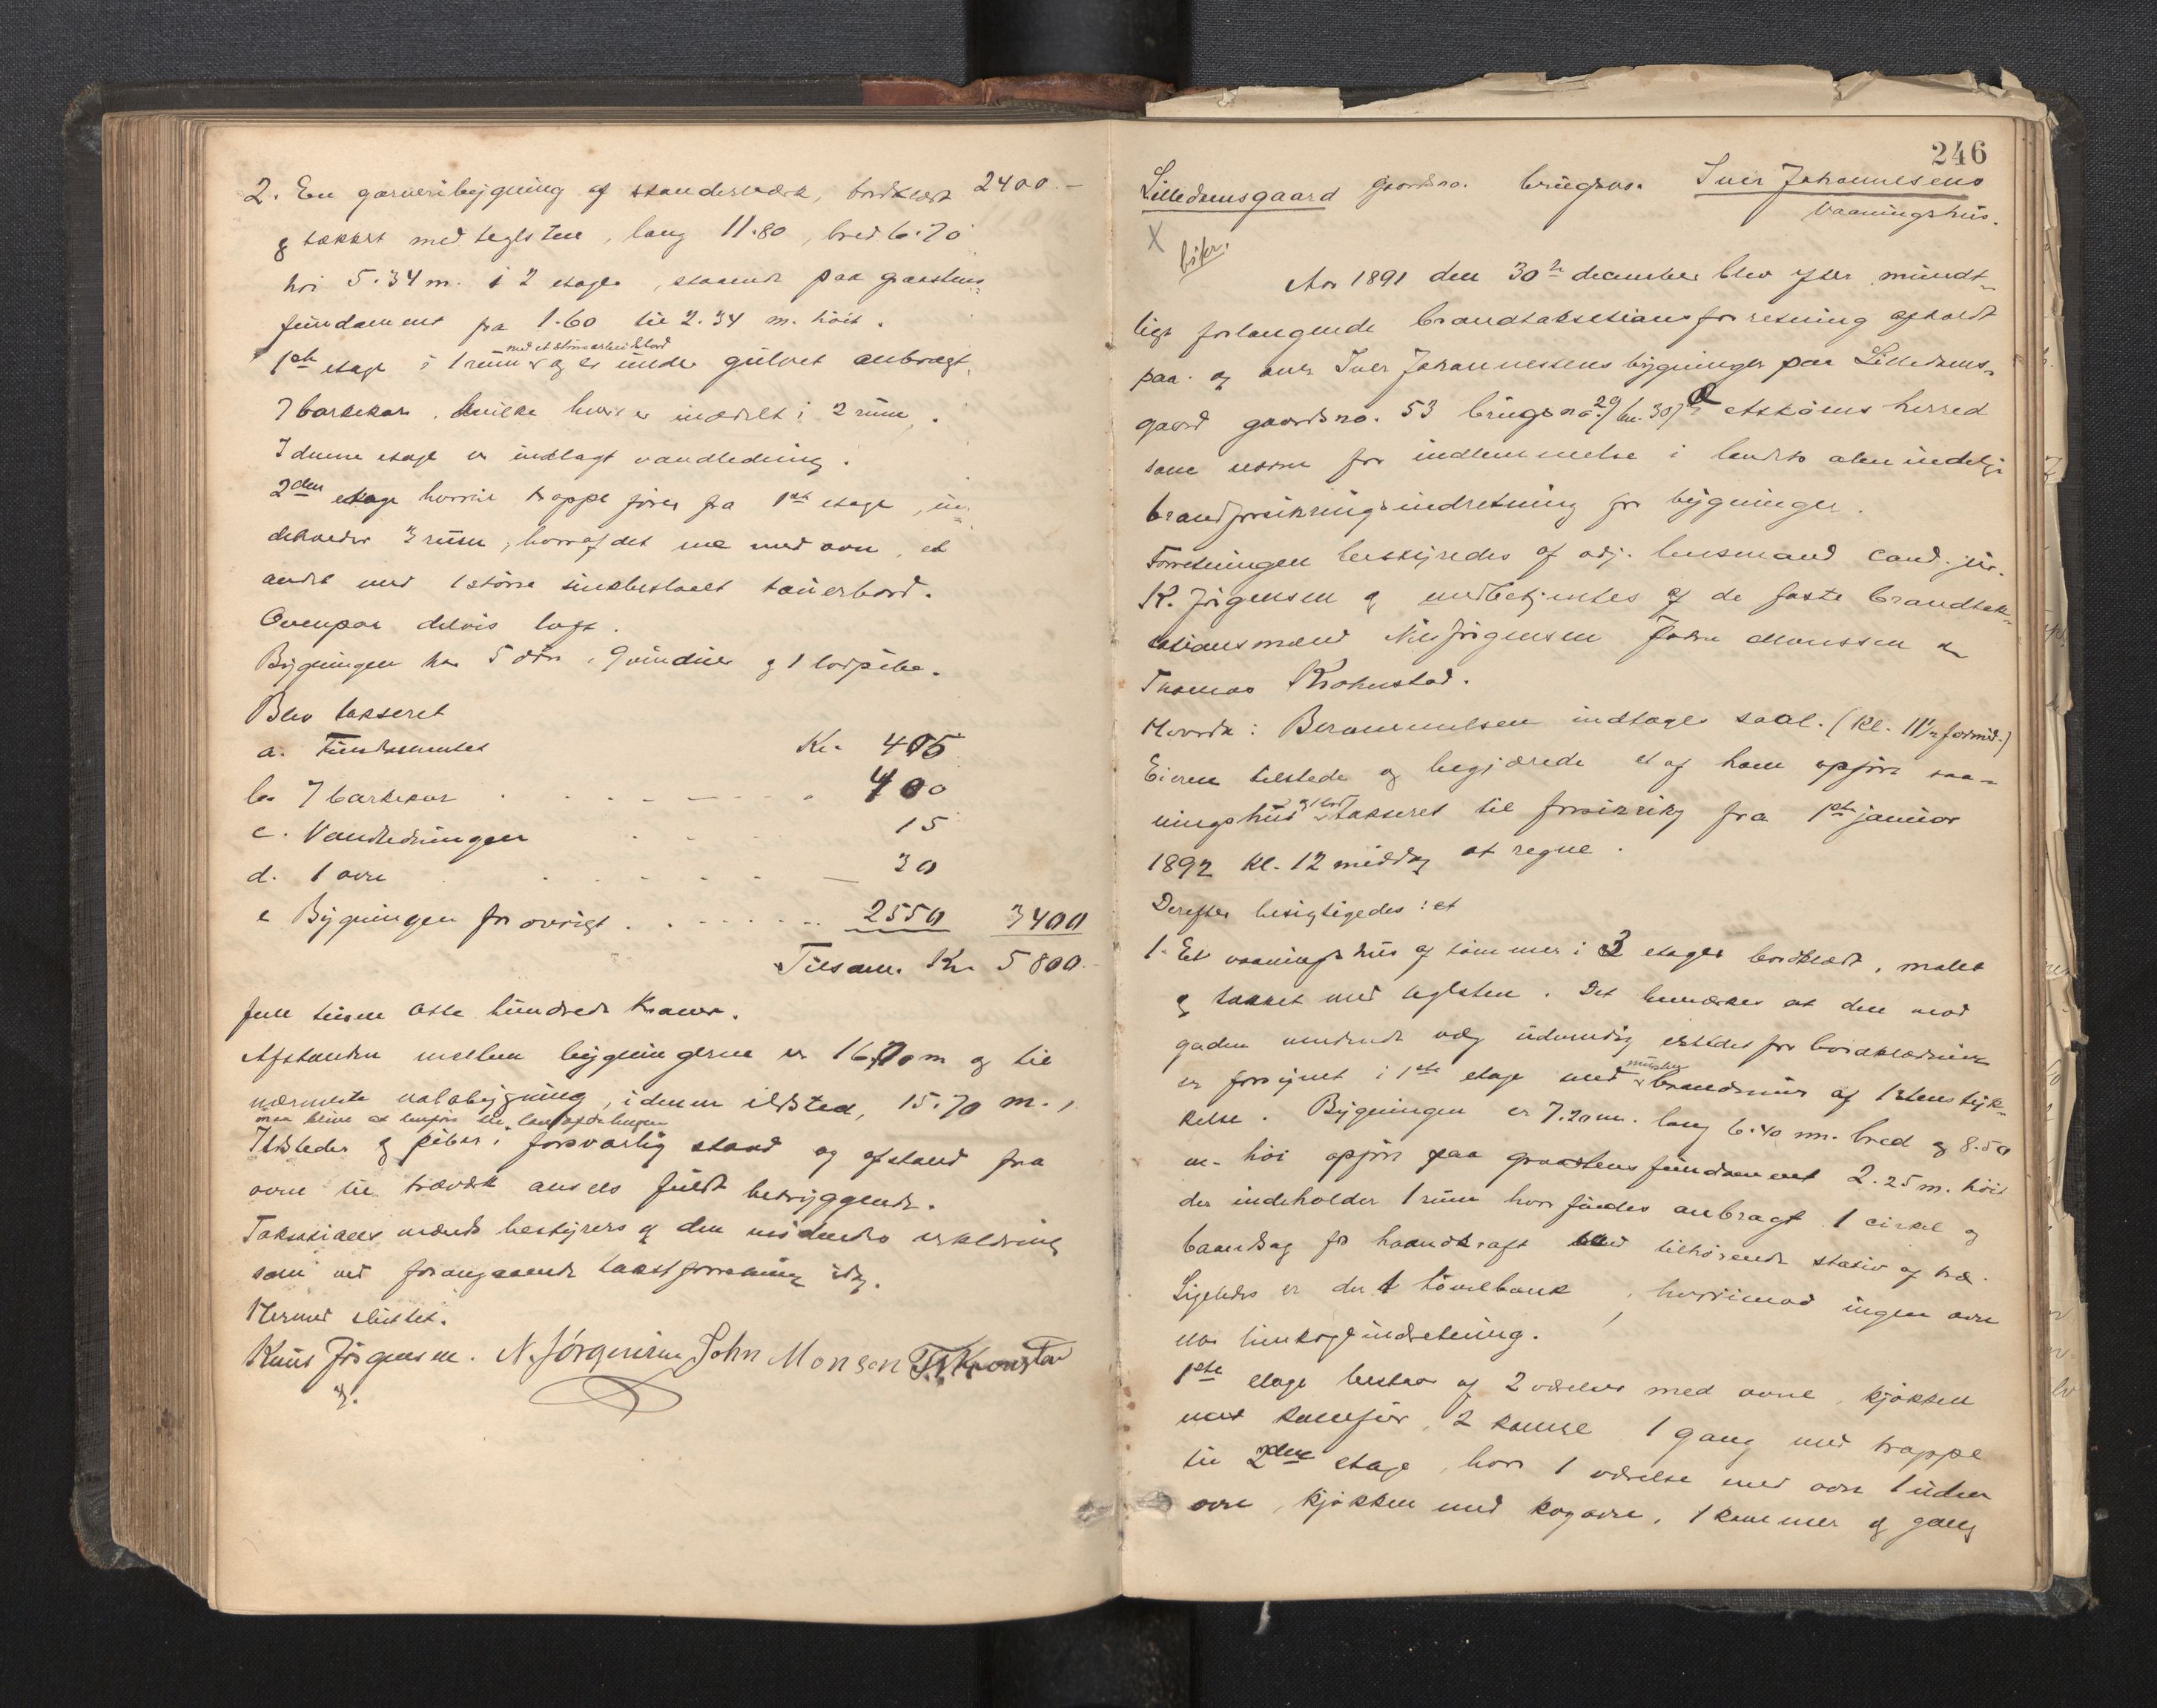 2. En garveribygning af standerværk, bordklædt 2400.-
& tækket med teglsten, lang 11.80, bred 6.70
høi 5.34 m. i 2 etager, staaende paa graastens
fundament fra 1.60 til 2.34 m. høit.
med et større arbeidsbord
1ste etage i 1 rum og er under gulvet anbragt
7 barkekar. hvilke hver er inddelt i 2 rum.
I denne etage er indlagt vandledning.
2den etage hvortil trappe fører fra 1ste etage, in-
deholder 3 rum, hvoraf det ene med ovn, et
andet med 1 større zinkbeslaaet bord.
Ovenpaa delvis loft.
Bygningen har 5 døre, 9 vinduer & 1 lodpibe.
Blev takseret
a. Fundamentet Kr. 405
b. 7 barkekar 400
c. Vandledningen 15
d. 1 ovn 30
e Bygningen for øvrigt 2550 3400
Tilsam. Kr. 5800.-
fem tusen otte hundrede Kroner.
Afstanden mellem bygningerne er 16.70 m og til
nærmeste nabobygning, i denne ildsted, 15.70 m.,
maa blive at henføre til landafdelingen
Ildsteder & piber i forsvarlig stand og afstand fra
ovne til træværk ansees fuldt betryggende.
Taksationsmænds bestyrers & den erklæring
som ved foregaaende takstforretning idag.
Hermed sluttet.
Knut Jörgensen. N. Jörgensen John Monsen T. Kronstad
246
Lilledamsgaard gaardsno. brugsno. Iver Johannesens
vaaningshus.
X
Aar 1891 den 30te december blev efter mundt-
ligt forlangende brandtakstationsforretning afholdt
paa og over Iver Johannessens bygninger paa Lilledams-
gaard gaardsno. 53 brugsno. 29/ bn. 30/ i Askøens herred
som norm for indlemmelse i landets almindelige
brandforsikringsindretning for bygninger.
Forretningen bestyredes af adj. lensmand cand. jur.
K. Jörgensen & medbetjentes af de faste brandtak-
stationsmænd Nils Jörgensen John Monssen &
Thomas Krohnstad.
Hvorda: Berammelsen indtages saal. (Kl. 11½ formid.)
Eieren tilstede og begjærede et af ham opført vaa-
ningshus takseret til forsikring fra 1ste januar
1892 kl. 12 middag at regne.
Derefter besigtigedes: et
1. Et vaaningshus af tømmer i 3 etager bordklædt, malet
& tækket med teglsten. Det bemærkes at den mod
gaden vendende væg udvendig istedet for bordklædning
er forsynet i 1ste etage med brandmur af 1 stens tyk-
kelse. Bygningen er 7.20 m. lang 6.40 m. bred & 8.50
m. høi opført paa graastens fundament 2.25 m. høit
der indeholder 1 rum hvor findes anbragt 1 cirkel og
baandsag for haandkraft med tilhørende stativ af træ.
Ligeledes er der 1 høvelbænk, hvorimod ingen ovn
eller limkogeindretning.
1ste etage bestaar af 2 værelser med ovne, kjøkken
med komfur, 2 kamre 1 gang med trappe
til 2den etage, hvor 1 værelse med ovn 1 uden
ovn, kjøkken med kogovn, 1 kammer & gang